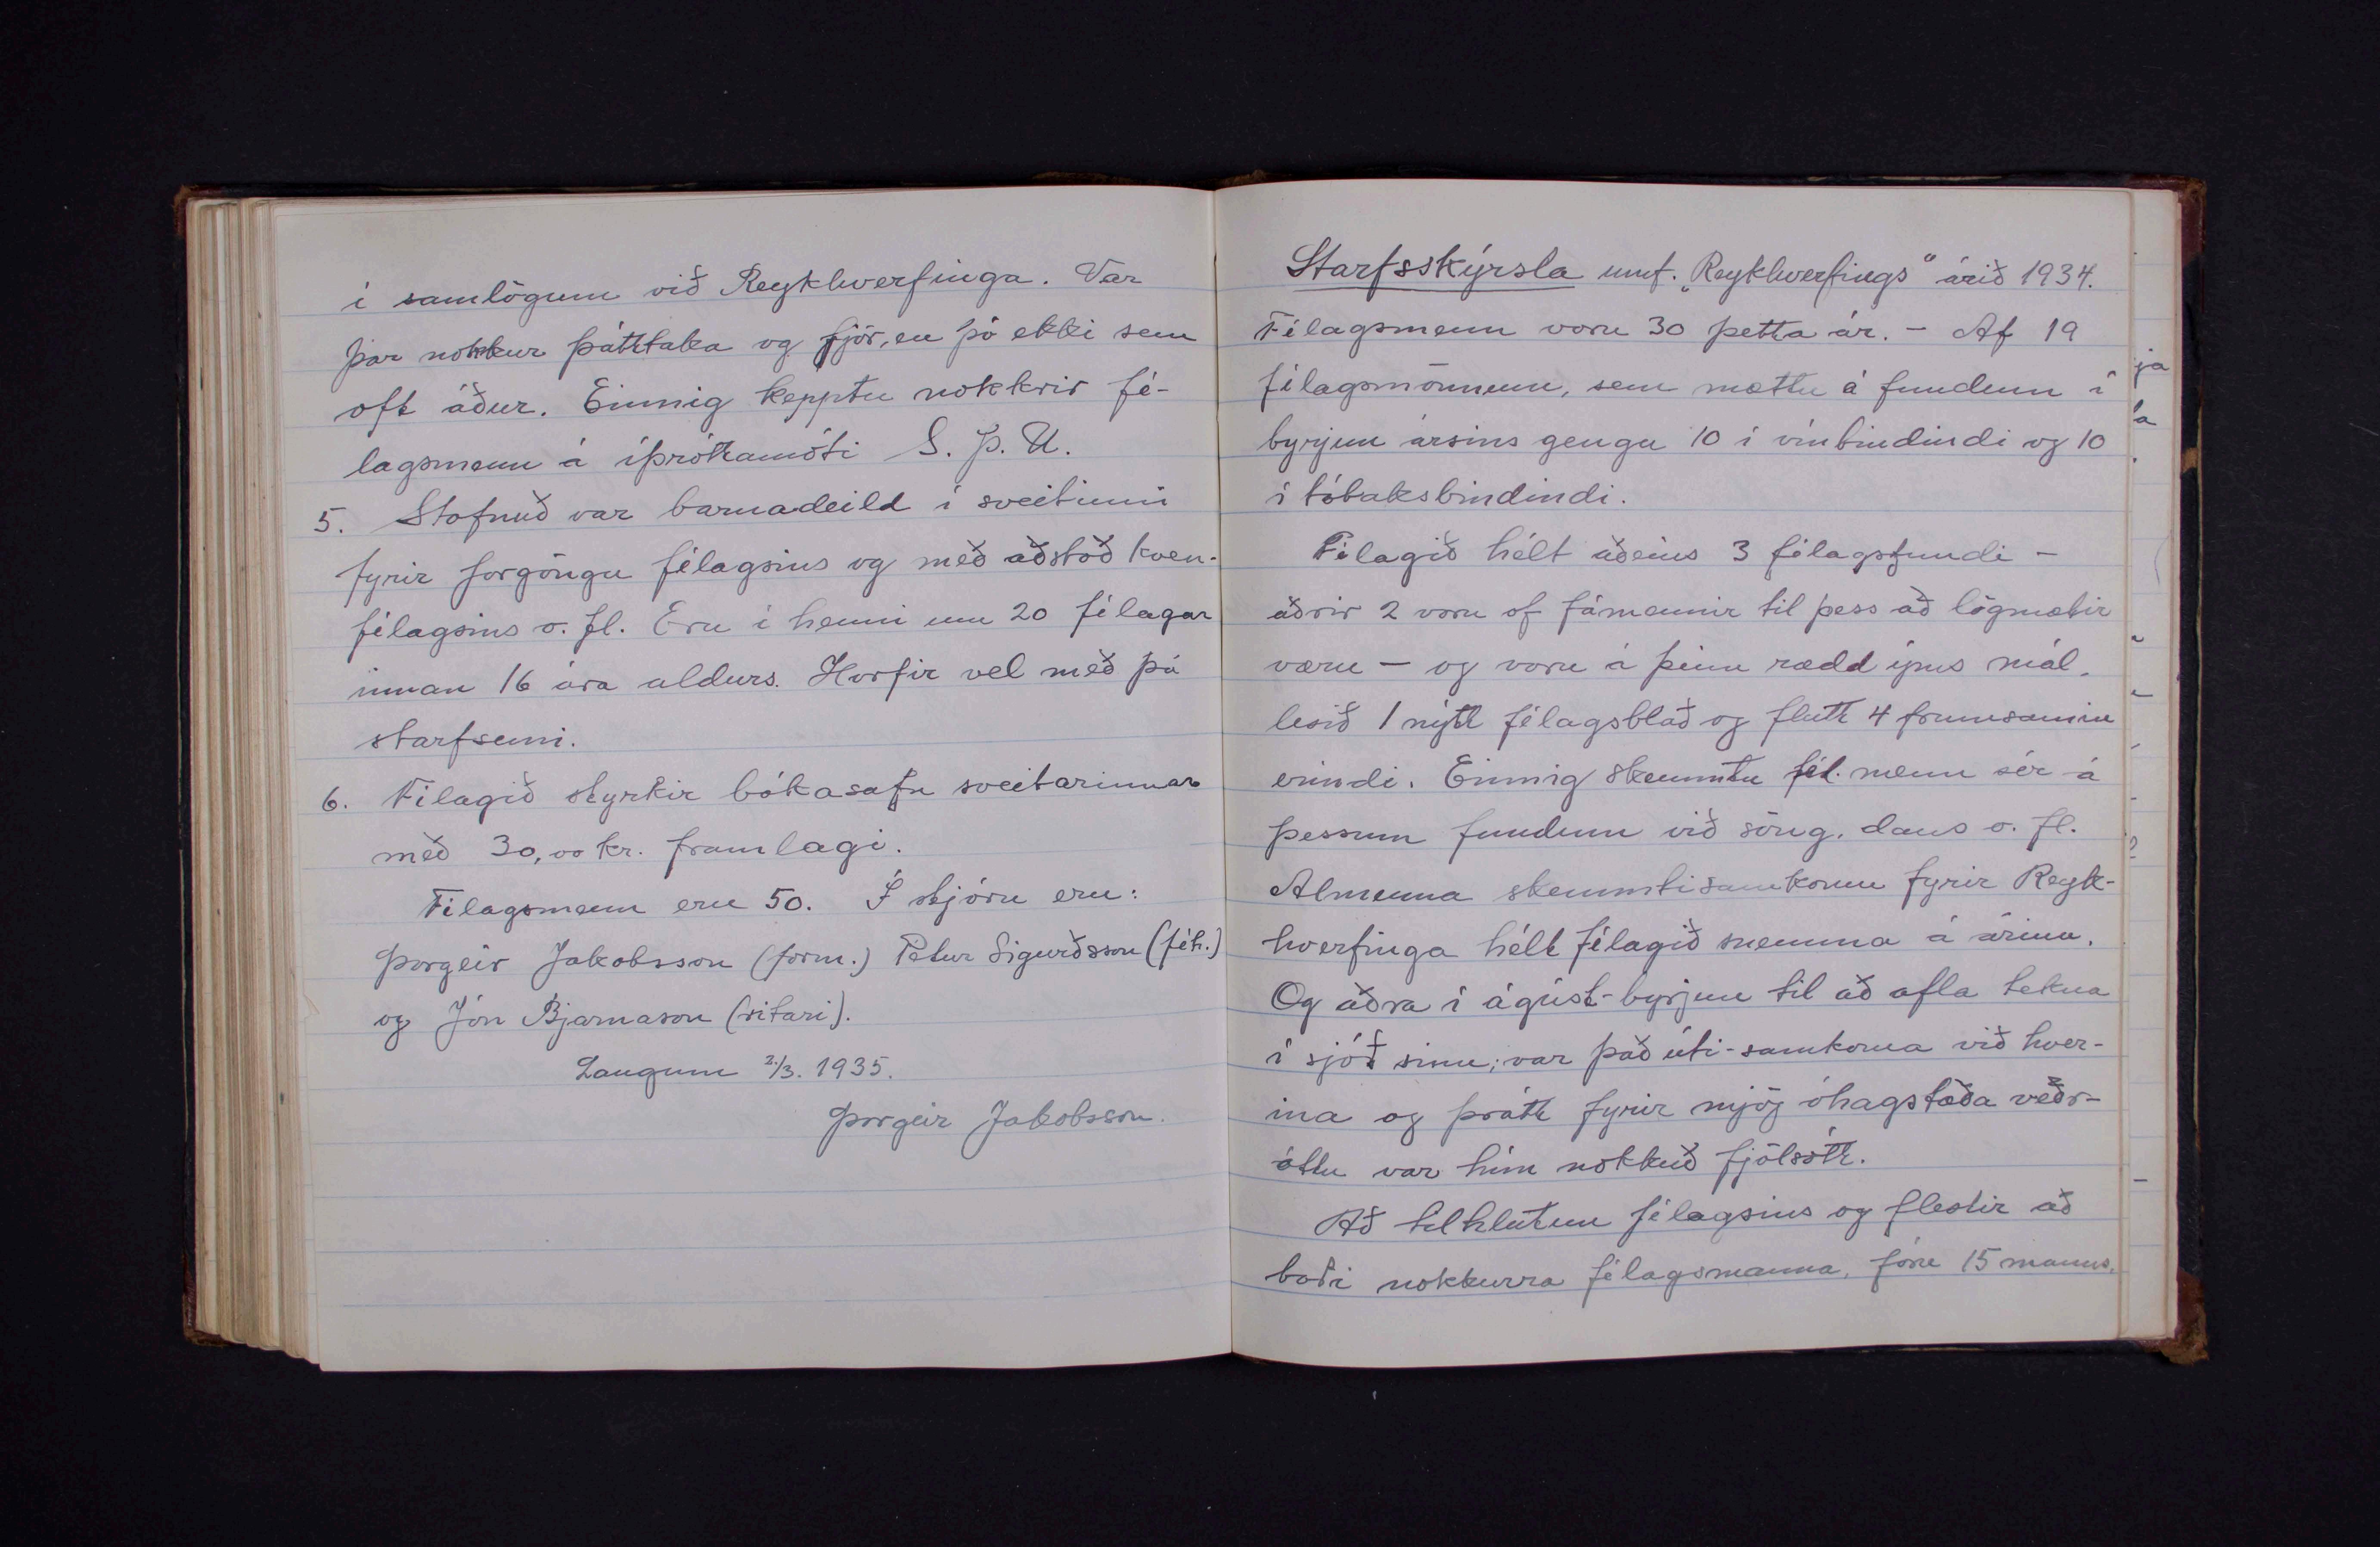 í samlögum við Reykhverfinga. Var
þar nokkur þátttaka og fjör, en þó ekki sem
oft áður. Einnig kepptu nokkrir fé-
lagsmenn á íþróttamóti S. Þ. U.
5. Stofnuð var barnadeild í sveitinni
fyrir forgöngu félagsins og með aðstoð kven-
félagsins o. fl. Eru í henni um 20 félagar
innan 16 ára aldurs. Horfir vel með þá
starfsemi.
6. Félagið styrkir bókasafn sveitarinnar
með 30,00 kr. framlagi.
Félagsmenn eru 50. Í stjórn eru:
Þorgeir Jakobsson (form.) Pétur Sigurðsson (féh.)
og Jón Bjarnason (ritari).
Laugum 2/3. 1935.
Þorgeir Jakobsson.
Starfsskýrsla umf. „Reykhverfings" árið 1934.
Félagsmenn voru 30 þetta ár. - Af 19
félagsmönnum, sem mættu á fundum í
byrjun ársins gengu 10 í vínbindindi og 10
í tóbaksbindindi.
Félagið hélt aðeins 3 félagsfundi -
aðrir 2 voru of fámennir til þess að lögmætir
væru - og voru á þeim rædd ýms mál,
lesið 1 nýtt félagsblað og flutt 4 frumsamin
erindi. Einnig skemmtu fél. menn sér á
þessum fundum við söng, dans o. fl.
Almenna skemmtisamkomu fyrir Reyk-
hverfinga hélt félagið snemma á árinu.
Og aðra í ágúst-byrjun til að afla tekna
í sjóð sinn; var það úti-samkoma við hver-
ina og þrátt fyrir mjög óhagstæða veðr-
áttu var hún nokkuð fjölsótt.
Að tilhlutun félagsins og flestir að
boði nokkurra félagsmanna, fóru 15 manns,
ja
a